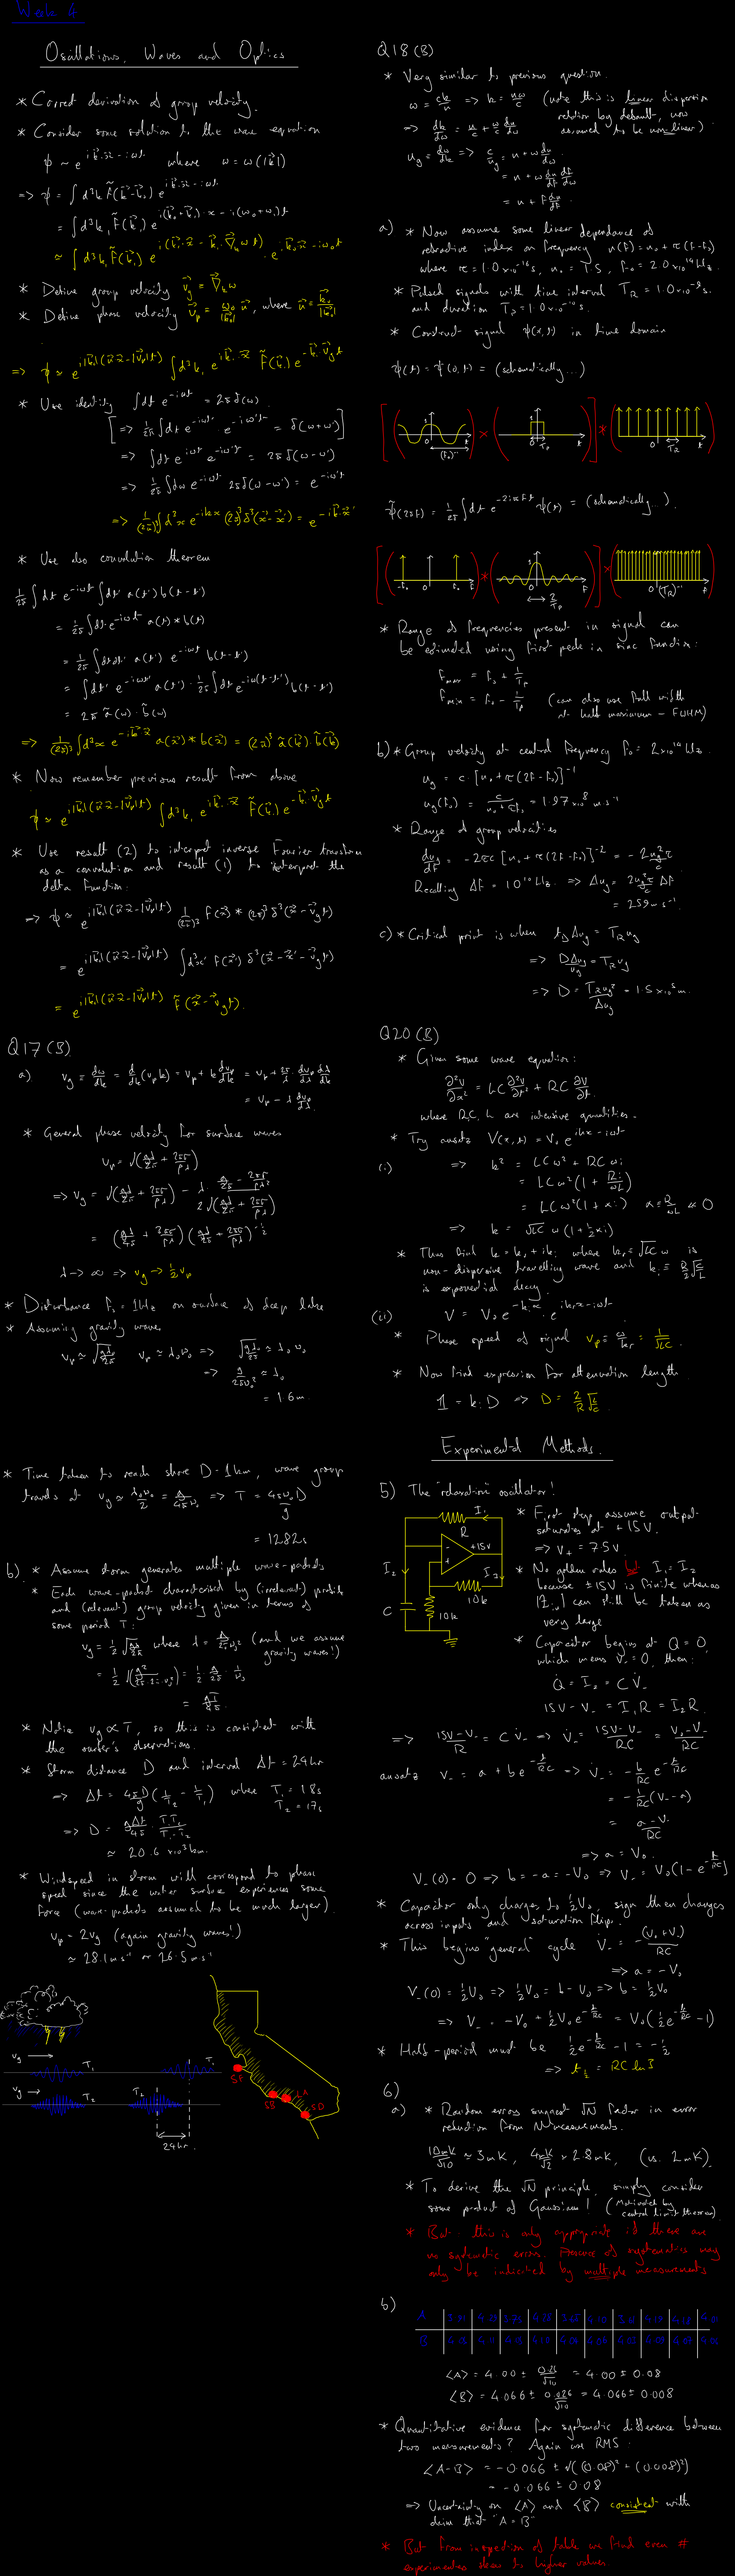 Week 4
Oscillations, Waves and Optics
* Correct derivation of group velocity.
* Consider some solution to the wave equation
ψ ~ e^{i k·x - iωt} where ω = ω(|k|)
=> ψ = ∫d³k F̃(k-k₀) e^{i k·x - iωt}
= ∫d³k₁ F̃(k₁) e^{i(k₁+k₀)·x - i(ω₀+ω₁)t}
≈ ∫d³k₁ F̃(k₁) e^{i(k₁·x - k₁·∇ₖω t)} · e^{i k₀·x - iω₀t}
* Define group velocity v_g = ∇ₖω
* Define phase velocity v_p = ω₀/|k₀| n, where n = k₀/|k₀|
=> ψ ≈ e^{i|k₀|(n·x - |v_p|t)} ∫d³k₁ e^{i k₁·x} F̃(k₁) e^{-k₁·v_g t}
* Use identity ∫dt e^{-iωt} = 2πδ(ω).
[=> 1/2π ∫dt e^{-iωt} · e^{-iω't} = δ(ω+ω')]
=> ∫dt e^{iωt} e^{-iω't} = 2πδ(ω-ω')
=> 1/2π ∫dω e^{-iωt} 2πδ(ω-ω') = e^{-iω't}
=> 1/(2π)³ ∫d³x e^{-ikx} (2π)³δ³(x-x') = e^{-ik·x'}
* Use also convolution theorem
1/2π ∫dt e^{-iωt} ∫dt' a(t') b(t-t')
= 1/2π ∫dt e^{-iωt} a(t) * b(t)
= 1/2π ∫dtdt' a(t') e^{-iωt} b(t-t')
= ∫dt' e^{-iωt'} a(t') · 1/2π ∫dt e^{-iω(t-t')} b(t-t')
= 2π ã(ω) · b̃(ω)
=> 1/(2π)³ ∫d³x e^{-ik·x} a(x) * b(x) = (2π)³ ã(k) · b̃(k)
* Now remember previous result from above
ψ ≈ e^{i|k₀|(n·x - |v_p|t)} ∫d³k₁ e^{i k₁·x} F̃(k₁) e^{-k₁·v_g t}
* Use result (2) to interpret inverse Fourier transform
as a convolution and result (1) to interpret the
delta function:
=> ψ ≈ e^{i|k₀|(n·x - |v_p|t)} 1/(2π)³ F(x) * (2π)³ δ³(x - v_g t)
= e^{i|k₀|(n·x - |v_p|t)} ∫d³x' F(x') δ³(x - x' - v_g t)
= e^{i|k₀|(n·x - |v_p|t)} F̃(x - v_g t).
Q17 (B)
a) v_g = dω/dk = d/dk(v_p k) = v_p + k dv_p/dk = v_p + 2π/λ · dv_p/dλ dλ/dk
= v_p - λ dv_p/dλ.
* General phase velocity for surface waves
v_p = √(gλ/2π + 2πσ/ρλ)
=> v_g = √(gλ/2π + 2πσ/ρλ) - λ · (g/2π - 2πσ/ρλ²)/(2√(gλ/2π + 2πσ/ρλ))
= (gλ/4π + 3πσ/ρλ)(gλ/2π + 2πσ/ρλ)^{-1/2}
λ → ∞ => v_g → ½v_p
* Disturbance f₀ = 1Hz on surface of deep lake
* Assuming gravity waves
v_p ≈ √(gλ₀/2π) v_p ≈ λ₀ν₀ => √(gλ₀/2π) ≈ λ₀ν₀
=> g/2πν₀² ≈ λ₀
= 1.6m.
* Time taken to reach shore D = 1km, wave group
travels at v_g ≈ λ₀ν₀/2 = g/4πν₀ => T = 4πν₀D/g
= 1282s
b) * Assume storm generates multiple wave-packets
* Each wave-packet characterised by (irrelevant) profile
and (relevant) group velocity given in terms of
some period T:
v_g = ½√(gλ/2π) where λ = g/2πν₀² (and we assume
gravity waves!)
= ½√(g²/2π·2π·ν₀²) = ½ · g/2π · 1/ν₀
= gT/4π.
* Notice v_g ∝ T, so this is consistent with
the surfer's observations.
* Storm distance D and interval Δt = 24hr
=> Δt = 4πD/g (1/T₂ - 1/T₁) where T₁ = 18s
T₂ = 17s
=> D = gΔt/4π · T₁T₂/(T₁-T₂)
≈ 20.6 ×10³km.
* Windspeed in storm will correspond to phase
speed since the water surface experiences some
force (wave-packets assumed to be much larger).
v_p = 2v_g (again gravity waves!)
≈ 28.1ms⁻¹ or 26.5ms⁻¹
v_g T₁ T₁
v_g T₂ T₂
24hr.
SF
SB
LA
SD
Q18 (B)
* Very similar to previous question.
ω = ck/n => k = nω/c (note this is linear dispersion
relation by default, now
assumed to be non-linear)
=> dk/dω = n/c + ω/c dn/dω
u_g = dω/dk => c/u_g = n + ω dn/dω
= n + ω dn/df df/dω
= n + f dn/df.
a) * Now assume some linear dependance of
refractive index on frequency n(f) = n₀ + τ(f-f₀)
where τ = 1.0×10⁻¹⁶s, n₀ = 1.5, f₀ = 2.0×10¹⁴Hz.
* Pulsed signals with time interval T_R = 1.0×10⁻⁹s.
and duration T_p = 1.0×10⁻¹⁰s.
* Construct signal ψ(x,t) in time domain
ψ(t) = ψ(0,t) = (schematically...)
1 0 (f₀)⁻¹ t × 1 0 T_p t * 0 T_R t
ψ̃(2πf) = 1/2π ∫dt e^{-2πift} ψ(t) = (schematically...).
-f₀ 0 f₀ f * 1 2/T_p f × 0 (T_R)⁻¹ f
* Range of frequencies present in signal can
be estimated using first peak in sinc function:
f_max = f₀ + 1/T_p
f_min = f₀ - 1/T_p (can also use full width
at half maximum - FWHM)
b) * Group velocity at central frequency f₀ = 2×10¹⁴Hz.
u_g = c · [n₀ + τ(2f-f₀)]⁻¹
u_g(f₀) = c/(n₀+τf₀) = 1.97×10⁸ms⁻¹
* Range of group velocities
du_g/df = -2τc [n₀ + τ(2f-f₀)]⁻² = -2u_g²τ/c
Recalling Δf = 10¹⁰Hz. => Δu_g = 2u_g²τ/c Δf
= 259ms⁻¹.
c) * Critical point is when t_D Δu_g = T_R u_g
=> DΔu_g/u_g = T_R u_g
=> D = T_R u_g²/Δu_g = 1.5×10⁵m.
Q20 (B)
* Given some wave equation:
∂²V/∂x² = LC ∂²V/∂t² + RC ∂V/∂t.
where R,C,L are intensive quantities.
* Try ansatz V(x,t) = V₀ e^{ikx - iωt}
(i) => k² = LCω² + RCωi
= LCω²(1 + Ri/ωL)
= LCω²(1 + αi) α = R/ωL ≪ 0
=> k = √LC ω(1 + ½αi)
* Thus find k = kᵣ + ikᵢ where kᵣ = √LC ω is
non-dispersive travelling wave and kᵢ = R/2 √(C/L)
is exponential decay.
(ii) V = V₀ e^{-kᵢx} · e^{ikᵣx - iωt}
* Phase speed of signal v_p = ω/kᵣ = 1/√LC.
* Now find expression for attenuation length
1 = kᵢD => D = 2/R √(L/C).
Experimental Methods.
5) The "relaxation" oscillator!
I₁
R
+15V
I₂
I₃
10k
10k
C
* First step assume output
saturates at +15V.
=> V₊ = 7.5V.
* No golden rules I₁ = I₂
because ±15V is finite whereas
|Z_in| can still be taken as
very large
* Capacitor begins at Q = 0,
which means V₋ = 0, then:
Q̇ = I₂ = C V̇₋
15V - V₋ = I₁R = I₂R.
=> (15V-V₋)/R = C V̇₋ => V̇₋ = (15V-V₋)/RC = (V₀-V₋)/RC
ansatz V₋ = a + b e^{-t/RC} => V̇₋ = -b/RC e^{-t/RC}
= -1/RC (V₋ - a)
= (a-V₋)/RC
=> a = V₀.
V₋(0) = 0 => b = -a = -V₀ => V₋ = V₀(1 - e^{-t/RC})
* Capacitor only charges to ½V₀, sign then changes
across inputs and saturation flips.
* This begins "general" cycle V̇₋ = -(V₀+V₋)/RC
=> a = -V₀
V₋(0) = ½V₀ => ½V₀ = b - V₀ => b = ³⁄₂V₀
=> V₋ = -V₀ + ³⁄₂V₀e^{-t/RC} = V₀(³⁄₂e^{-t/RC} - 1)
* Half-period must be ³⁄₂e^{-t/RC} - 1 = -½
=> t_½ = RC ln3
6)
a) * Random errors suggest √N factor in error
reduction from N measurements.
10mK/√10 ≈ 3mK, 4mK/√2 ≈ 2.8mK, (vs. 2mK).
* To derive the √N principle, simply consider
some product of Gaussians! (Motivated by
central limit theorem)
* But... this is only appropriate if there are
no systematic errors. Presence of systematics may
only be indicated by multiple measurements
b)
A
B
⟨A⟩ = 4.00 ± 0.26/√10 = 4.00 ± 0.08
⟨B⟩ = 4.066 ± 0.026/√10 = 4.066 ± 0.008
* Quantitative evidence for systematic difference between
two measurements? Again use RMS.
⟨A-B⟩ = -0.066 ± √((0.08)² + (0.008)²)
= -0.066 ± 0.08
=> Uncertainty on ⟨A⟩ and ⟨B⟩ consistent with
claim that "A = B"
* But from inspection of table we find even #
experimenters skew to higher values